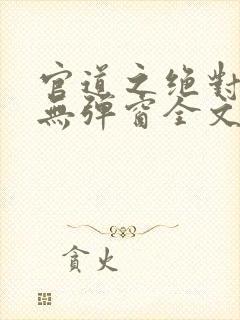 官道之绝對
無彈窗全文
貪火